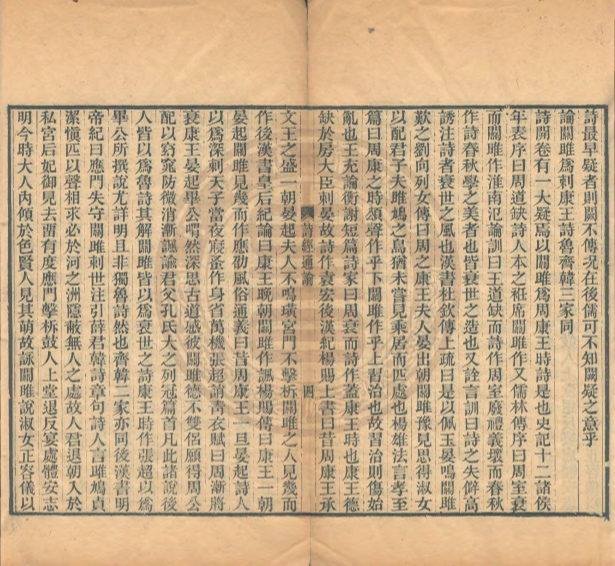 詩最早疑者則闕不傳況在後儒可不知闕疑之意乎
論關雎爲刺康王詩魯齊韓三家同
詩開卷有一大疑焉以關雎爲周康王時詩是也史記十二諸侯
年表序曰周道缺詩人本之袵席關雎作又儒林傳序曰周室衰
而關雎作淮南氾論訓曰王道缺而詩作周室廢禮義壞而春秋
作詩春秋學之美者也皆衰世之造也又詮言訓曰詩之失僻高
誘注詩者衰世之風也漢書杜欽傳上疏曰是以佩玉晏鳴關雎
歎之劉向列女傳曰周之康王夫人晏出朝關雎豫見思得淑女
以配君子夫雎鳩之鳥猶未嘗見乘居而匹處也楊雄法言孝至
篇曰周康之時頌聲作乎下關雎作乎上習治也故習治則傷始
亂也王充論衡謝短篇詩家曰周衰而詩作蓋康王時也康王德
缺於房大臣刺晏故詩作袁宏後漢紀楊賜上書曰昔周康王承
詩經通論 四
文王之盛一朝晏起夫人不鳴璜宮門不擊柝關雎之人見幾而
作後漢書皇后紀論曰康王晚朝關雎作諷楊賜傳曰康王一朝
晏起關雎見幾而作應劭風俗通義曰昔周康王一旦晏起詩人
以爲深刺天子當夜寢蚤作身省萬機張超誚青衣賦曰周漸將
衰康王晏起畢公喟然深思古道感彼關雎德不雙侶願得周公
配以窈窕防微消漸諷諭君父孔氏大之列冠篇首凡此諸說後
人皆以爲魯詩其解關雎皆以爲衰世之詩康王時作張超以爲
畢公所撰說尤詳明且非獨魯詩然也齊韓二家亦同後漢書明
帝紀曰應門失守關雎刺世注引薛君韓詩章句詩人言雎鳩貞
潔慎匹以聲相求必於河之洲隱蔽無人之處故人君退朝入於
私宮后妃御見去畱有度應門擊柝鼓人上堂退反宴處體安志
明今時大人內傾於色賢人見其萌故詠關雎說淑女正容儀以